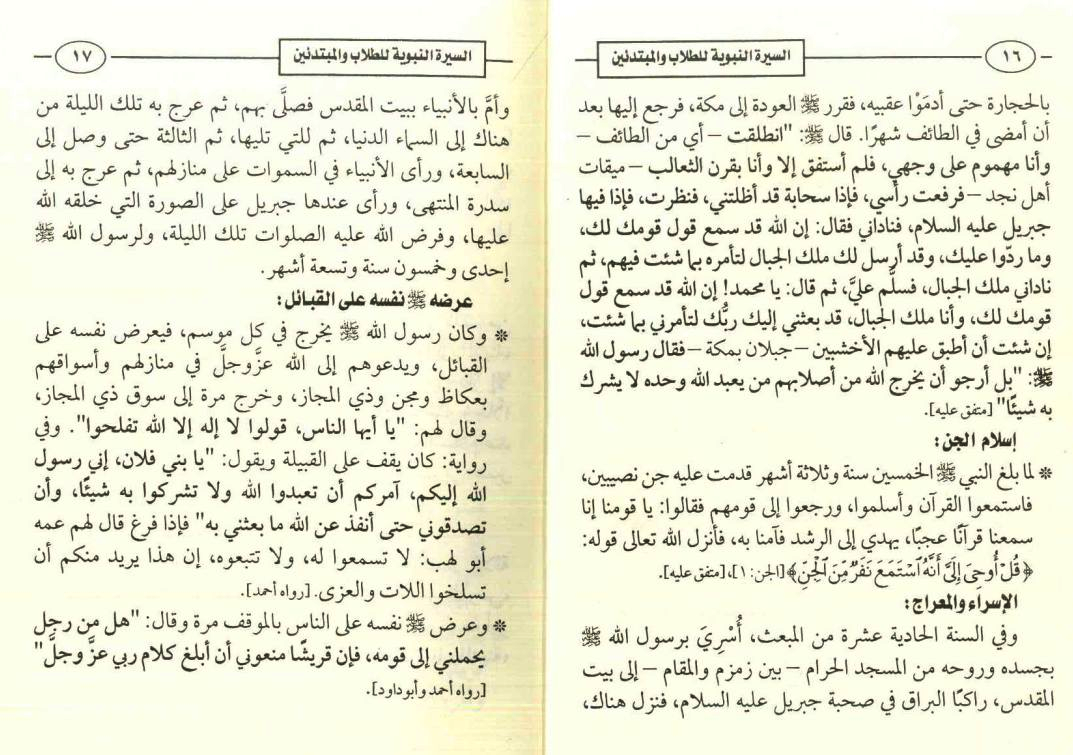 السيرة النبوية للطلاب والمبتدئين
١٦
بالحجارة حتى أدمَوْا عقبيه، فقرر ﷺ العودة إلى مكة، فرجع إليها بعد
أن أمضى في الطائف شهرًا. قال ﷺ: "انطلقت – أي من الطائف –
وأنا مهموم على وجهي، فلم أستفق إلا وأنا بقرن الثعالب – ميقات
أهل نجد – فرفعت رأسي، فإذا سحابة قد أظلتني، فنظرت، فإذا فيها
جبريل عليه السلام، فناداني فقال: إن الله قد سمع قول قومك لك،
وما ردّوا عليك، وقد أرسل لك ملك الجبال لتأمره بما شئت فيهم، ثم
ناداني ملك الجبال، فسلَّم عليَّ، ثم قال: يا محمد! إن الله قد سمع قول
قومك لك، وأنا ملك الجبال، قد بعثني إليك ربُّك لتأمرني بما شئت،
إن شئت أن أطبق عليهم الأخشبين – جبلان بمكة – فقال رسول الله
ﷺ: "بل أرجو أن يخرج الله من أصلابهم من يعبد الله وحده لا يشرك
به شيئًا" [متفق عليه].
إسلام الجن:
* لما بلغ النبي ﷺ الخمسين سنة وثلاثة أشهر قدمت عليه جن نصيبين،
فاستمعوا القرآن وأسلموا، ورجعوا إلى قومهم فقالوا: يا قومنا إنا
سمعنا قرآنًا عجبًا، يهدي إلى الرشد فآمنا به، فأنزل الله تعالى قوله:
﴿قُلْ أُوحِىَ إِلَىَّ أَنَّهُ ٱسْتَمَعَ نَفَرٌ مِّنَ ٱلْجِنِّ﴾ [الجن: ١]، [متفق عليه].
الإسراء والمعراج:
وفي السنة الحادية عشرة من المبعث، أُسْرِيَ برسول الله ﷺ
بجسده وروحه من المسجد الحرام – بين زمزم والمقام – إلى بيت
المقدس، راكبًا البراق في صحبة جبريل عليه السلام، فنزل هناك،
السيرة النبوية للطلاب والمبتدئين
١٧
وأمَّ بالأنبياء ببيت المقدس فصلَّى بهم، ثم عرج به تلك الليلة من
هناك إلى السماء الدنيا، ثم للتي تليها، ثم الثالثة حتى وصل إلى
السابعة، ورأى الأنبياء في السموات على منازلهم، ثم عرج به إلى
سدرة المنتهى، ورأى عندها جبريل على الصورة التي خلقه الله
عليها، وفرض الله عليه الصلوات تلك الليلة، ولرسول الله ﷺ
إحدى وخمسون سنة وتسعة أشهر.
عرضه ﷺ نفسه على القبائل:
* وكان رسول الله ﷺ يخرج في كل موسم، فيعرض نفسه على
القبائل، ويدعوهم إلى الله عزَّوجلَّ في منازلهم وأسواقهم
بعكاظ ومجن وذي المجاز، وخرج مرة إلى سوق ذي المجاز،
وقال لهم: "يا أيها الناس، قولوا لا إله إلا الله تفلحوا". وفي
رواية: كان يقف على القبيلة ويقول: "يا بني فلان، إني رسول
الله إليكم، آمركم أن تعبدوا الله ولا تشركوا به شيئًا، وأن
تصدقوني حتى أنفذ عن الله ما بعثني به" فإذا فرغ قال لهم عمه
أبو لهب: لا تسمعوا له، ولا تتبعوه، إن هذا يريد منكم أن
تسلخوا اللات والعزى. [رواه أحمد].
* وعرض ﷺ نفسه على الناس بالموقف مرة وقال: "هل من رجل
يحملني إلى قومه، فإن قريشًا منعوني أن أبلغ كلام ربي عزَّ وجلَّ"
[رواه أحمد وأبو داود].